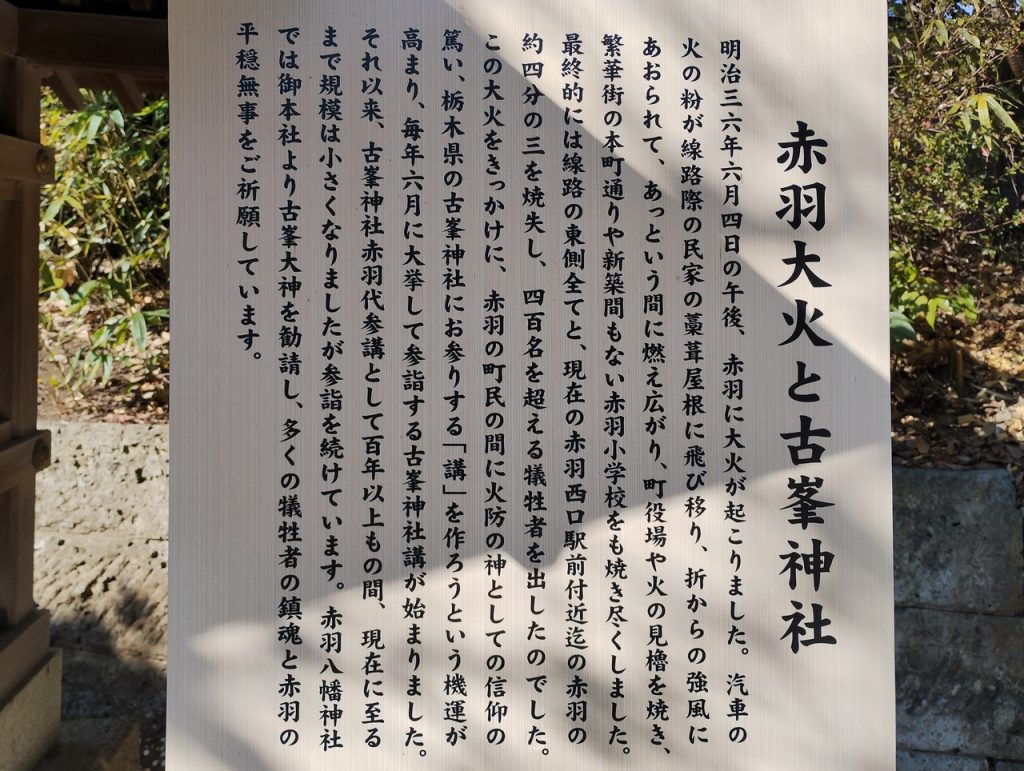 赤羽大火と古峯神社
明治三六年六月四日の午後、赤羽に大火が起こりました。汽車の
火の粉が線路際の民家の藁葺屋根に飛び移り、折からの強風に
あおられて、あっという間に燃え広がり、町役場や火の見櫓を焼き、
繁華街の本町通りや新築間もない赤羽小学校をも焼き尽くしました。
最終的には線路の東側全てと、現在の赤羽西口駅前付近迄の赤羽の
約四分の三を焼失し、四百名を超える犠牲者を出したのでした。
この大火をきっかけに、赤羽の町民の間に火防の神としての信仰の
篤い、栃木県の古峯神社にお参りする「講」を作ろうという機運が
高まり、毎年六月に大挙して参詣する古峯神社講が始まりました。
それ以来、古峯神社赤羽代参講として百年以上もの間、現在に至る
まで規模は小さくなりましたが参詣を続けています。赤羽八幡神社
では御本社より古峯大神を勧請し、多くの犠牲者の鎮魂と赤羽の
平穏無事をご祈願しています。